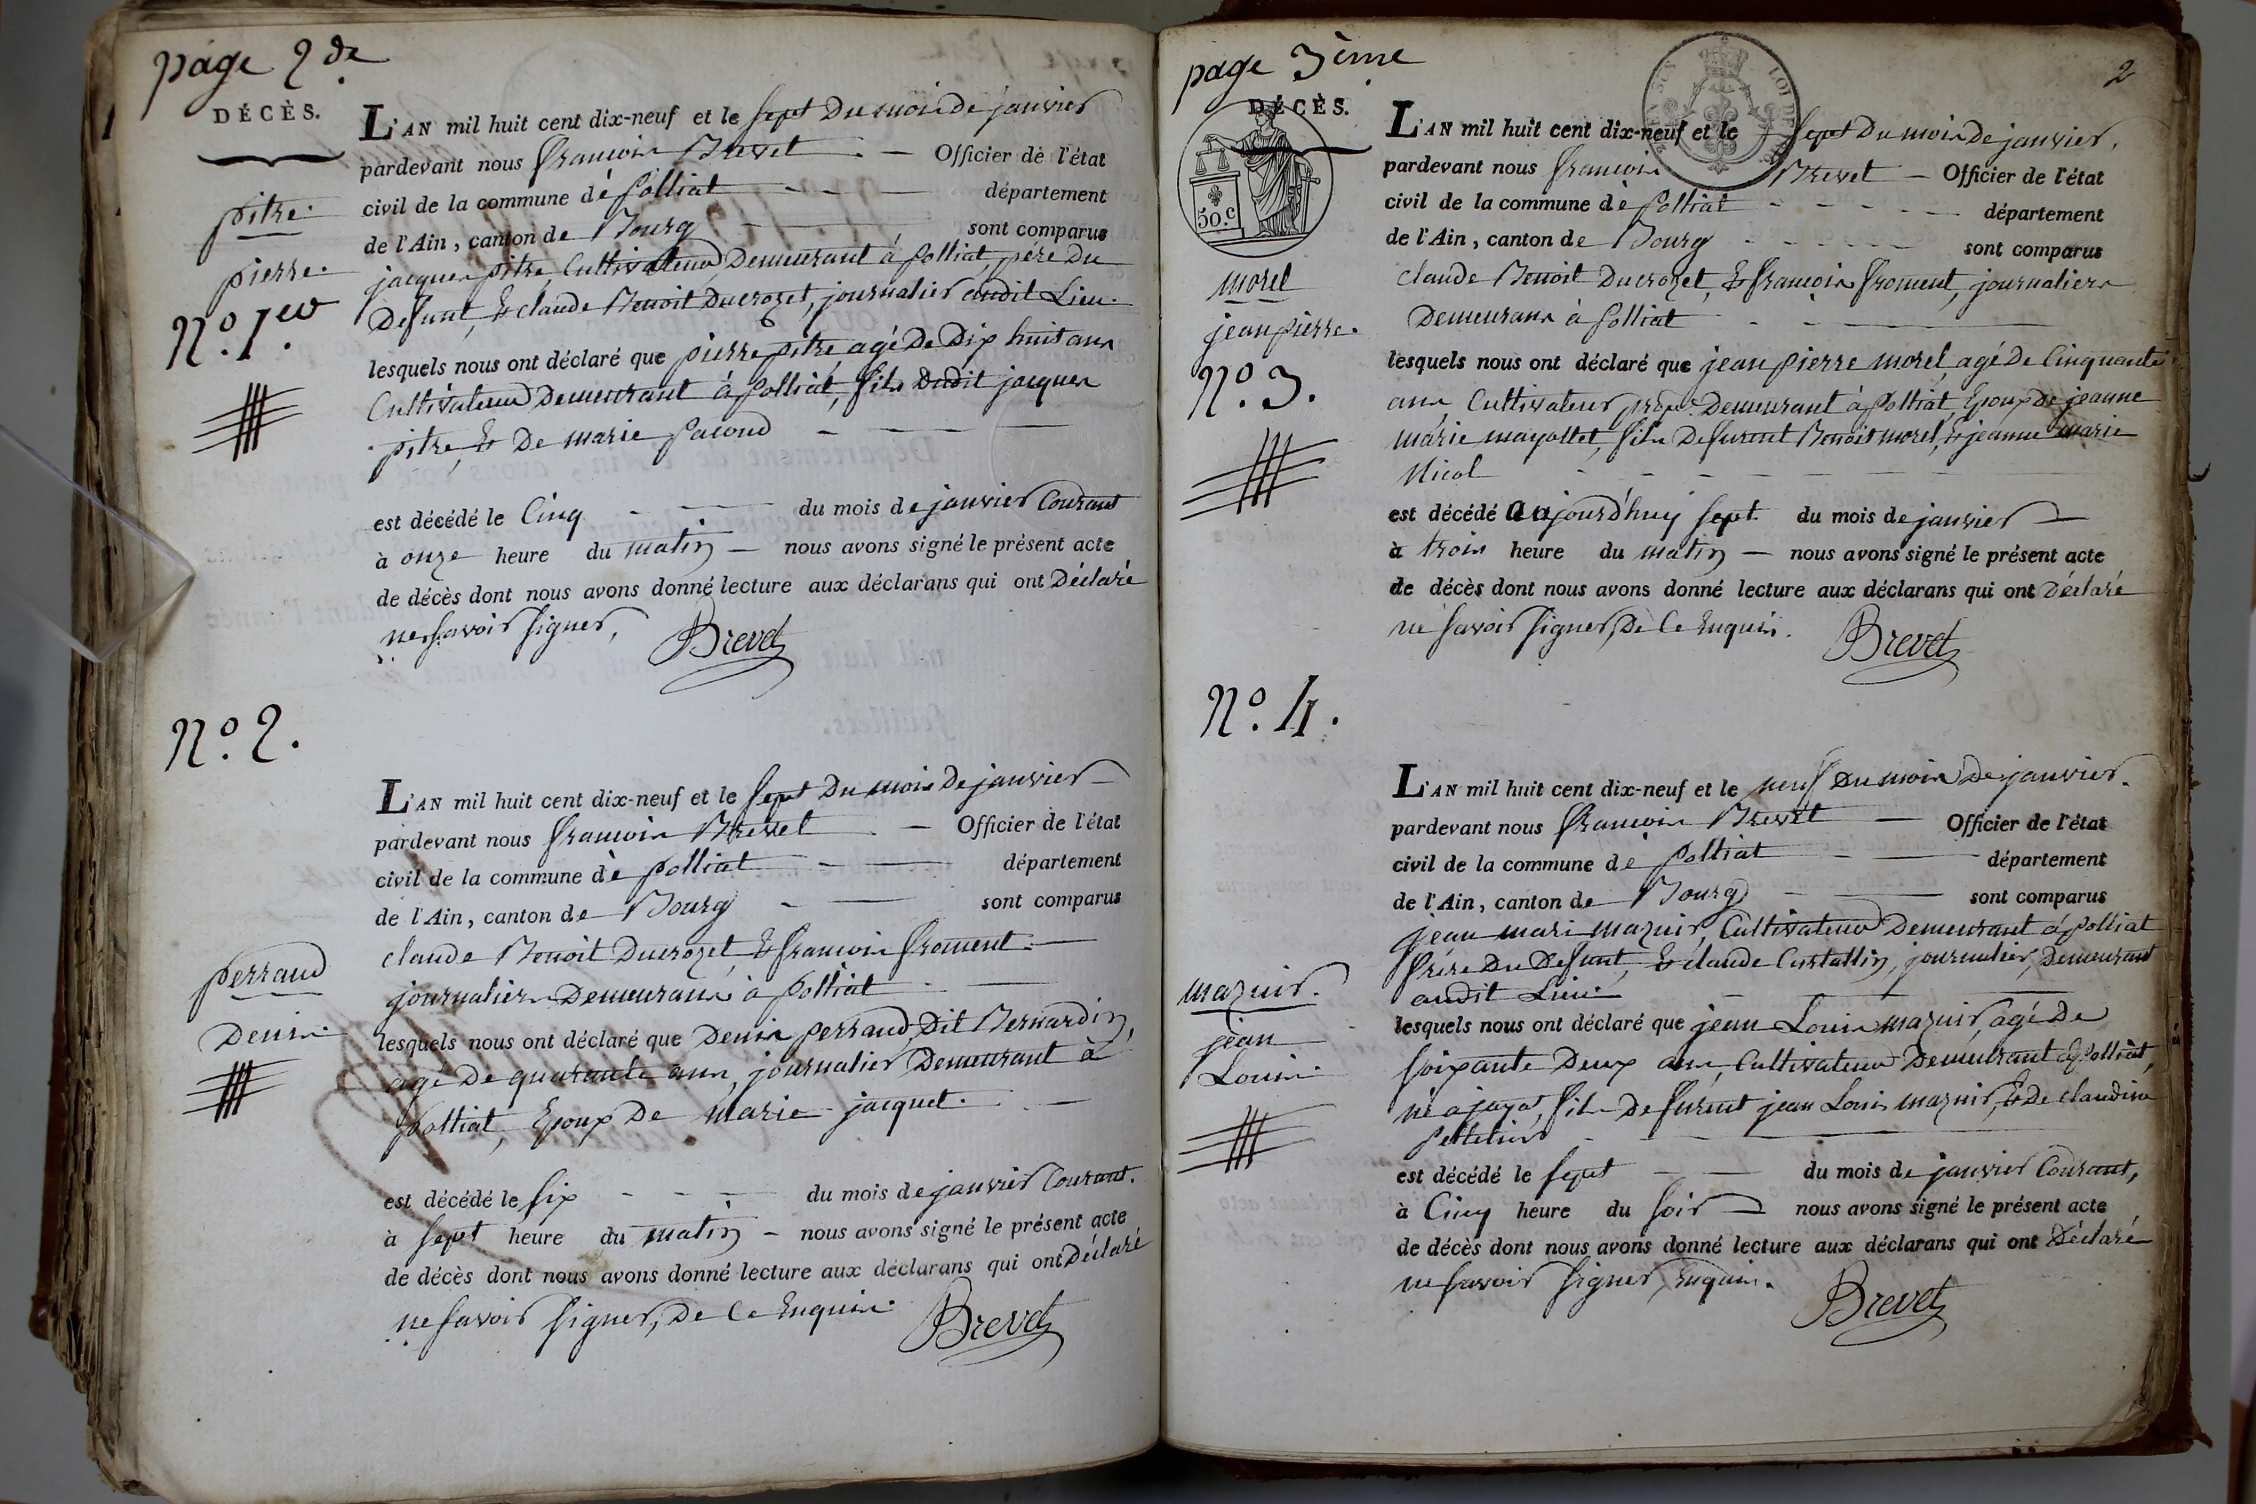 page 2de
DÉCÈS.
pitre.
pierre.
No. 1er
L'AN mil huit cent dix-neuf et le sept du mois de janvier
pardevant nous françois Brevet Officier de l'état
civil de la commune de polliat département
de l'Ain, canton de Bourg sont comparus
jacques pitre, Cultivateur Demeurant à polliat, père du
Defunt, & claude Benoit Ducrozet, journalier audit Lieu.
lesquels nous ont déclaré que pierre pitre agé De Dix huit ans
Cultivateur Demeurant à polliat, fils Dudit jacques
pitre, & De marie pacoud
est décédé le Cinq du mois de janvier Courant
à onze heure du matin nous avons signé le présent acte
de décès dont nous avons donné lecture aux déclarans qui ont Déclaré
ne savoir signer,
Brevet
No. 2.
perraud
Denis.
L'AN mil huit cent dix-neuf et le sept Du mois De janvier
pardevant nous françois Brevet Officier de l'état
civil de la commune de polliat département
de l'Ain, canton de Bourg sont comparus
claude Benoit Ducrozet, & françois froment.
journaliers Demeurans à polliat
lesquels nous ont déclaré que Denis perraud, Dit Bernardin,
agé De quarante ans, journalier Demeurant à
polliat, Epoux De marie jacquet.
est décédé le six du mois de janvier Courant.
à sept heure du matin nous avons signé le présent acte
de décès dont nous avons donné lecture aux déclarans qui ont Déclaré
ne savoir signer, De Ce Enquis.
Brevet
page 3ème
2
DÉCÈS.
50.c
morel
jean pierre.
No. 3.
L'AN mil huit cent dix-neuf et le sept Du mois De janvier,
pardevant nous françois Brevet Officier de l'état
civil de la commune de polliat département
de l'Ain, canton de Bourg sont comparus
claude Benoit Ducrozet, & françois froment, journaliers
Demeurans à polliat
lesquels nous ont déclaré que jean pierre morel, agé De Cinquante
ans, Cultivateur propre. Demeurant à polliat, Epoux de jeanne
marie mayollet, fils De furent Benoit morel, & jeanne marie
Nicol
est décédé aujourd'huy sept du mois de janvier
à trois heure du matin nous avons signé le présent acte
de décès dont nous avons donné lecture aux déclarans qui ont Déclaré
ne savoir signer, De Ce Enquis.
Brevet
No. 4.
mazuir.
jean
Louis.
L'AN mil huit cent dix-neuf et le neuf Du mois De janvier.
pardevant nous françois Brevet Officier de l'état
civil de la commune de polliat département
de l'Ain, canton de Bourg sont comparus
jean mari mazuir, Cultivateur Demeurant à polliat
frère Du Defunt, & claude Curtallin, journalier, Demeurant
audit Lieu
lesquels nous ont déclaré que jean Louis mazuir, agé De
soixante Deux ans, Cultivateur Demeurant à polliat,
né a jayat, fils De furent jean Louis mazuir, & De claudine
pelletier
est décédé le sept du mois de janvier Courant,
à Cinq heure du soir nous avons signé le présent acte
de décès dont nous avons donné lecture aux déclarans qui ont Déclaré
ne savoir signer, Enquis.
Brevet